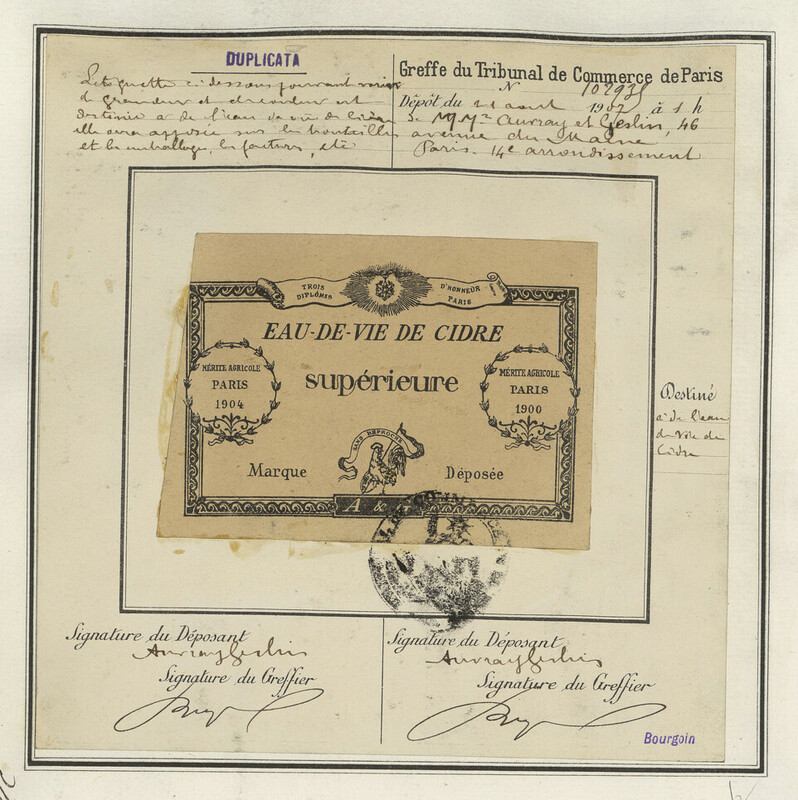 DUPLICATA
L'étiquette ci dessous pouvant varier
de grandeur et de couleur est
destinée à de l'eau de vie de Cidre
elle sera apposée sur les bouteilles
et les emballages, les factures, etc
Greffe du Tribunal de Commerce de Paris
N° 102935
Dépôt du 21 août 1907 à 1 h
de MM. Auvray et Geslin, 46
avenue du Maine
Paris. 14e arrondissement
TROIS DIPLÔMES
D'HONNEUR PARIS
EAU-DE-VIE DE CIDRE
supérieure
MÉRITE AGRICOLE
PARIS
1904
MÉRITE AGRICOLE
PARIS
1900
SANS REPROCHE
Marque Déposée
A &
Destiné
à de l'eau
de Vie de
Cidre
Signature du Déposant
Auvray Geslin
Signature du Greffier
Signature du Déposant
Auvray Geslin
Signature du Greffier
Bourgoin